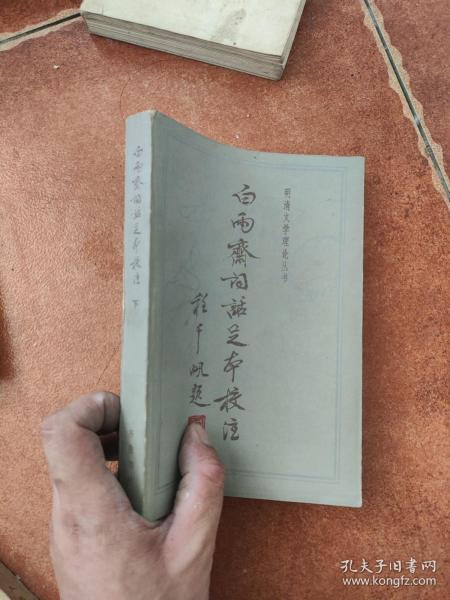 明清文学理论丛书
白雨齋詞話足本校注
程千帆題
白雨齋詞話足本校注 下
孔夫子旧书网
www.kongfz.com